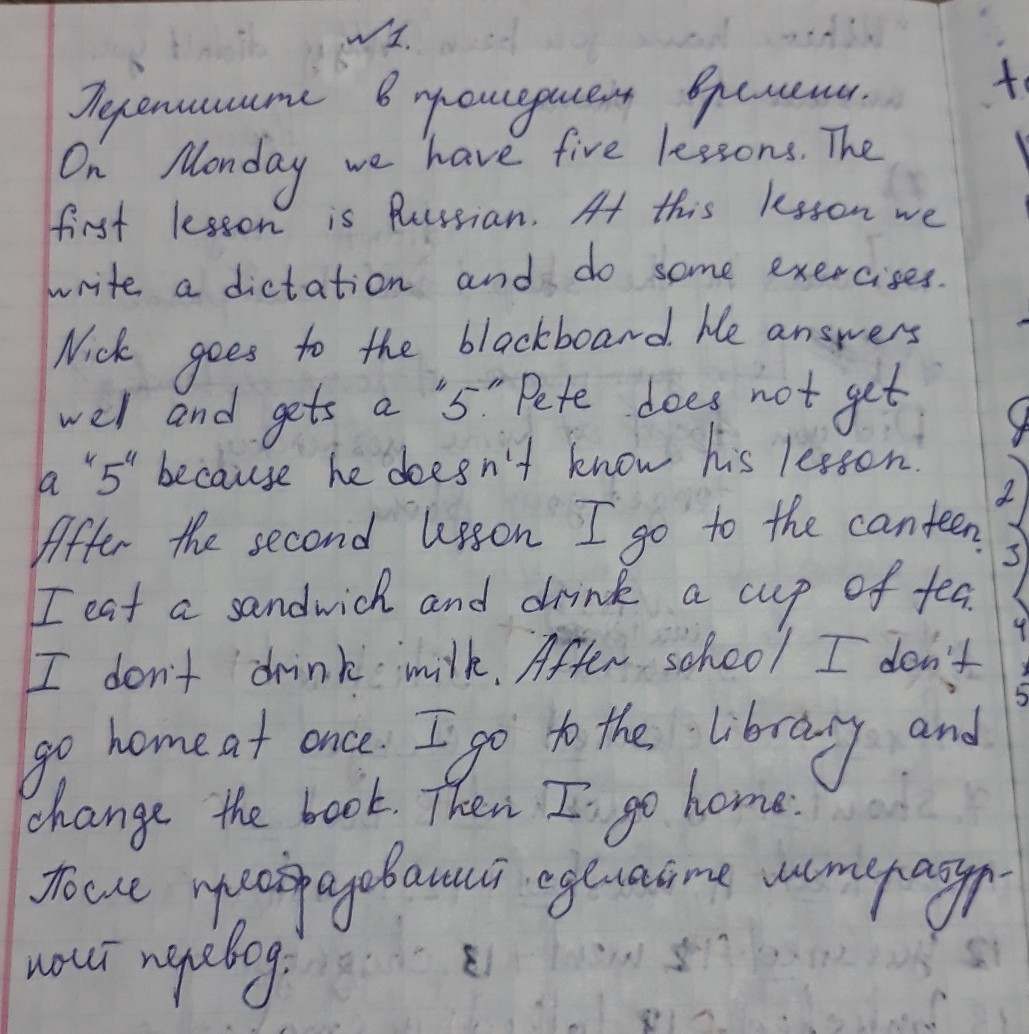 №1.
Перепишите в прошедшем времени.
On Monday we have five lessons. The
first lesson is Russian. At this lesson we
write a dictation and do some exercises.
Nick goes to the blackboard. He answers
wel and gets a "5". Pete does not get
a "5" because he doesn't know his lesson.
After the second lesson I go to the canteen.
I eat a sandwich and drink a cup of tea.
I don't drink milk. After school I don't
go home at once. I go to the library and
change the book. Then I go home.
После преобразований сделайте литератур-
ный перевод.
2)
3)
4
5